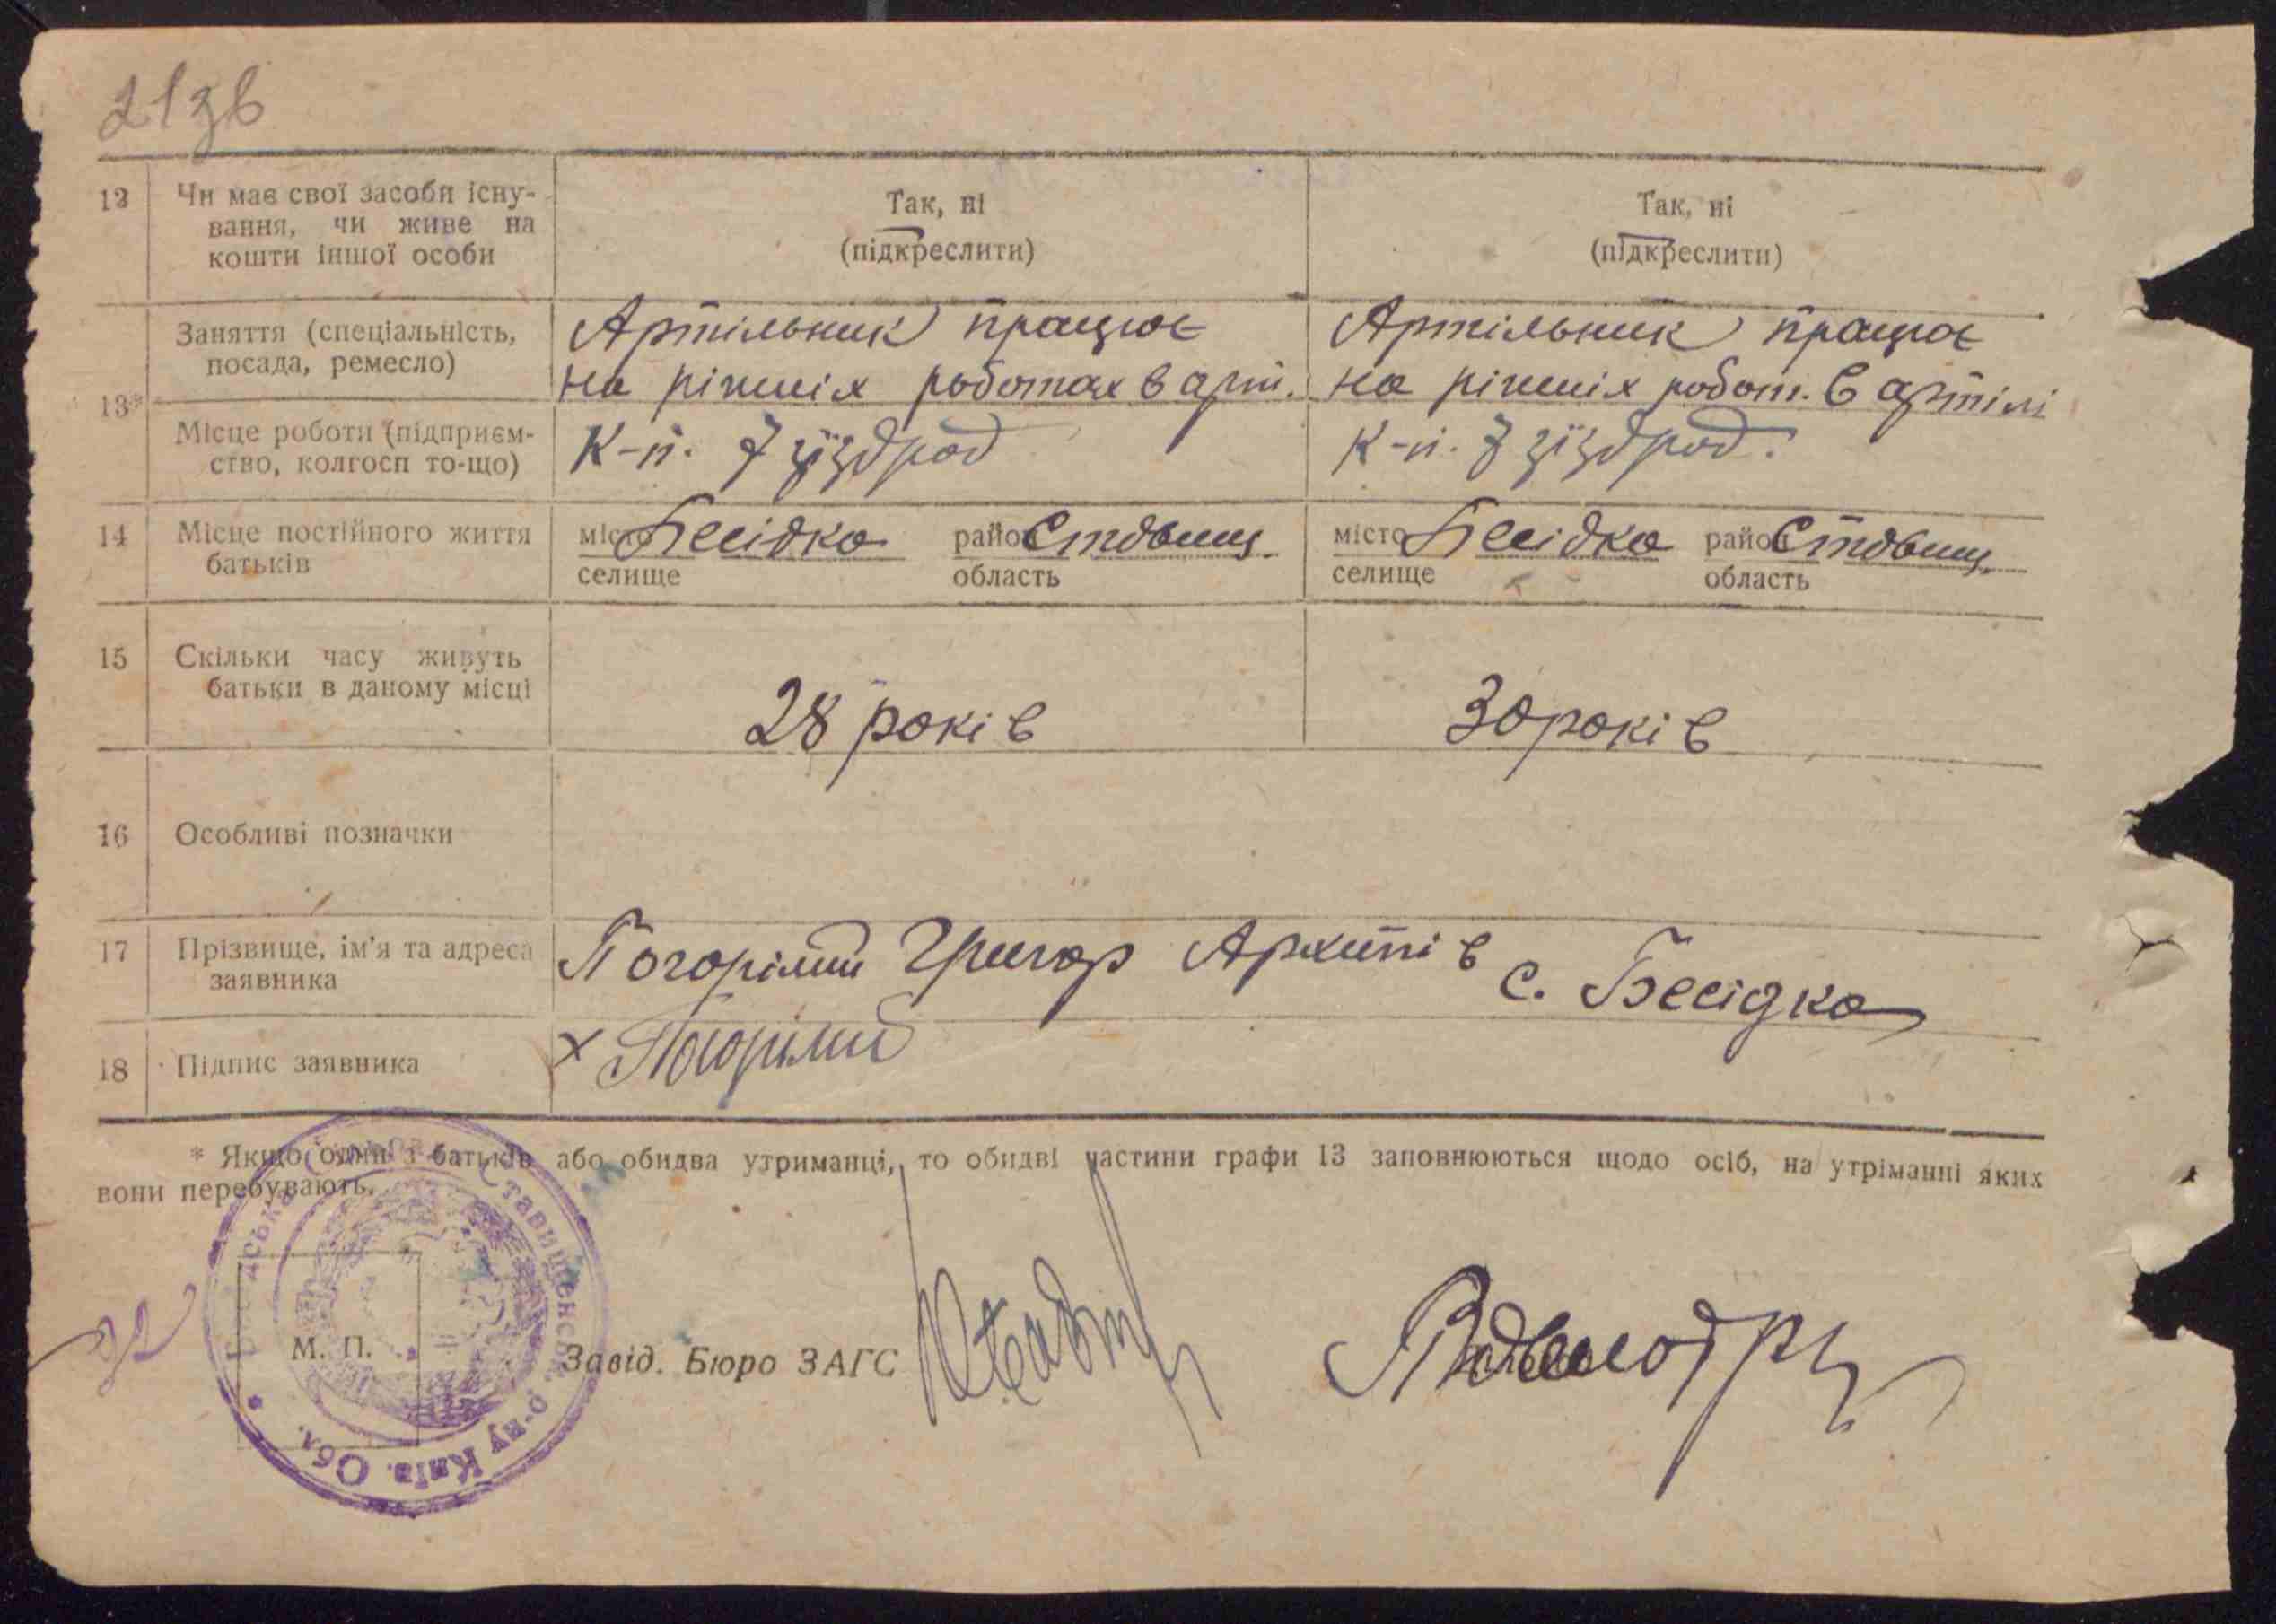 21зв
12 Чи має свої засоби існу-
вання, чи живе на
кошти іншої особи
Так, ні
(підкреслити)
Так, ні
(підкреслити)
13*
Заняття (спеціальність,
посада, ремесло)
Артільник працює
на ріжних роботах в арт.
Артільник працює
на ріжних робот. в артілі
Місце роботи (підприєм-
ство, колгосп то-що)
К-п. 7 зїзд рад
К-п. 7 зїзд рад.
14 Місце постійного життя
батьків
місто Бесідка район Ставищ.
селище область
місто Бесідка район Ставищ.
селище область
15 Скільки часу живуть
батьки в даному місці
28 років
30 років
16 Особливі позначки
17 Прізвище, ім'я та адреса
заявника
Погорілий Григор Архипів с. Бесідка
18 Підпис заявника
х Погорілий
* Якщо один з батьків або обидва утриманці, то обидві частини графи 13 заповнюються щодо осіб, на утріманні яких
вони перебувають.
Ставищенськ. р-ну Київ. Обл.
М. П.
Завід. Бюро ЗАГС